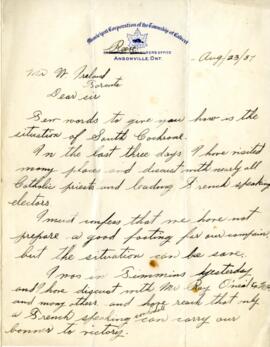 Municipal Corporation of the Township of Calvert
OFFICE
ANSONVILLE ONT.
Aug/23/37
Mr W. Ireland
Toronto
Dear sir
Few words to give you how is the
situation of South Cochrane.
In the last three days I have visited
many places and discust with nearly all
Catholic priests and leading French speaking
electors.
I must confess that we have not
prepare a good footing for our compain,
but the situation can be save.
I was in Timmins yesterday
and I have discust with Mr
and many others and reach that only
a French speaking can carry our
banner to victory.